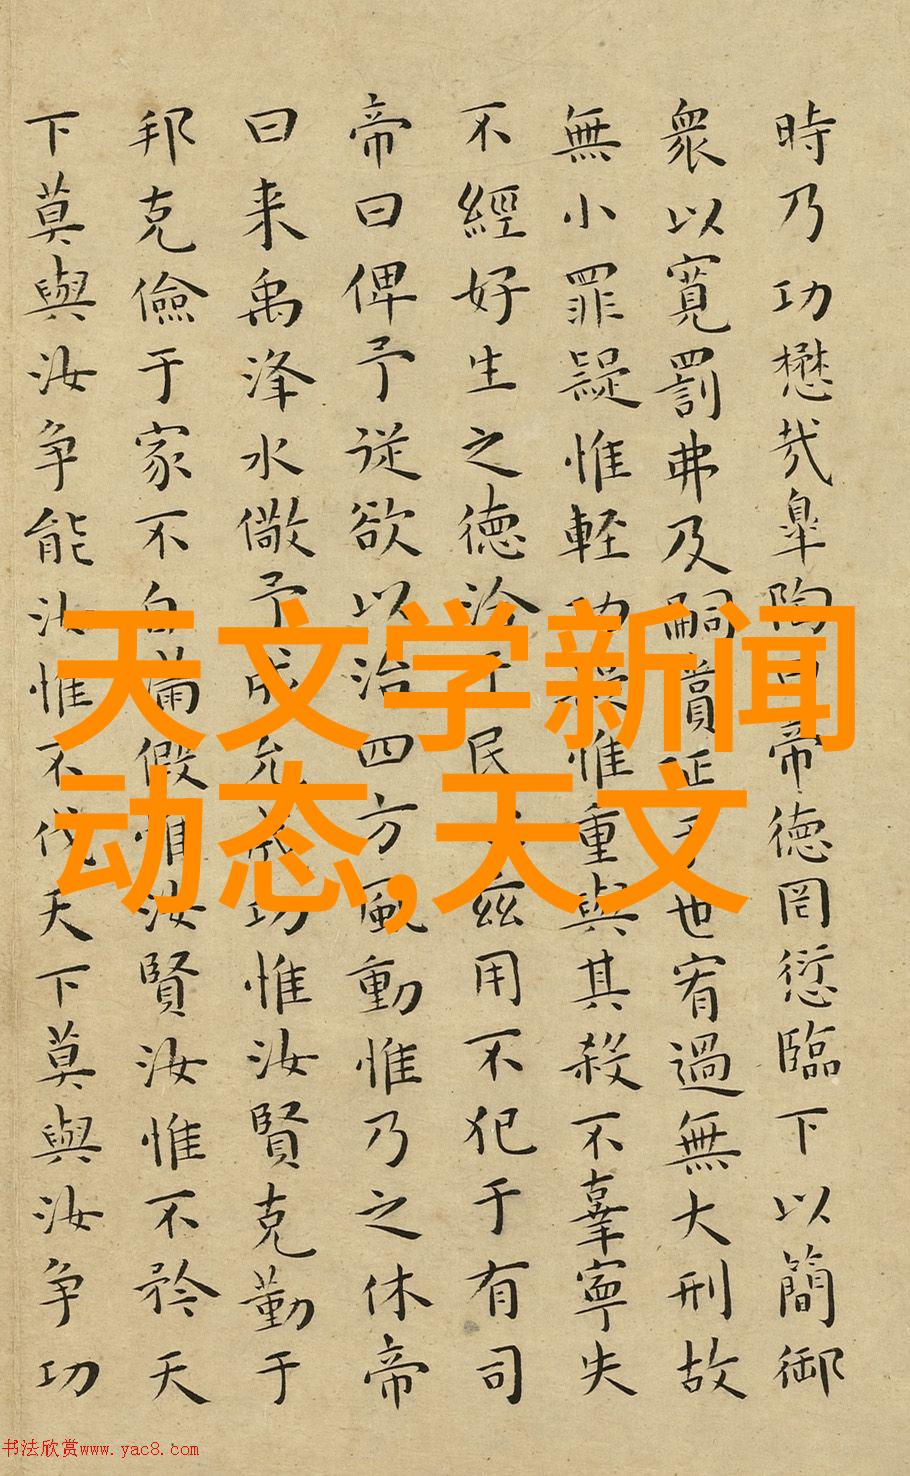 時乃功懋哉皐陶曰帝徳罔愆臨下以簡御
衆以寛罰弗及嗣賞延于世宥過無大刑故
無小罪疑惟軽功疑惟重與其殺不辜寧失
不經好生之徳洽于民兹用不犯于有司
帝曰俾予従欲以治四方風動惟乃之休帝
曰来禹洚水儆予成允成功惟汝賢克勤于
邦克儉于家不自滿假惟汝賢汝惟不矜天
下莫與汝争能汝惟不伐天下莫與汝争功
天文学新闻
动态,天文
书法欣赏www.yac8.com